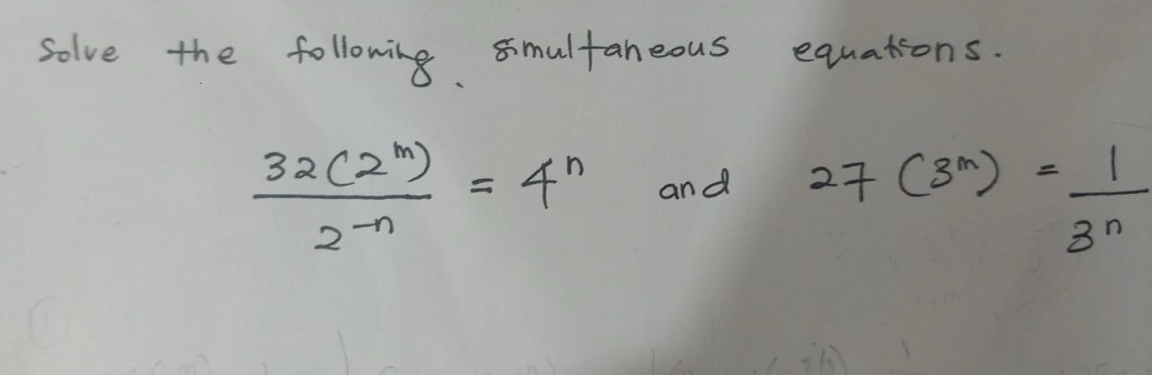 Solve the following simultaneous equations.
32(2^m)/2^-n = 4^n and 27(3^m) = 1/3^n